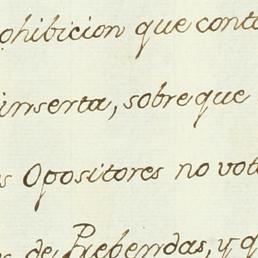 ohibicion que conte
inserta, sobre que
s Opositores no vot
s de Prebendas, y q